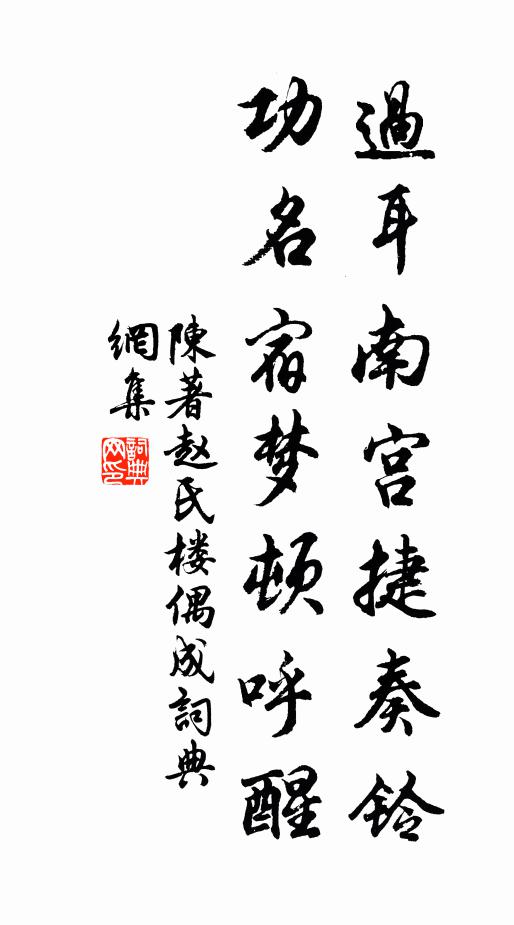 過耳南宫捷奏鈴
功名宿梦頓呼醒
陳著赵氏楼偶成詞典
網集
詞典网印